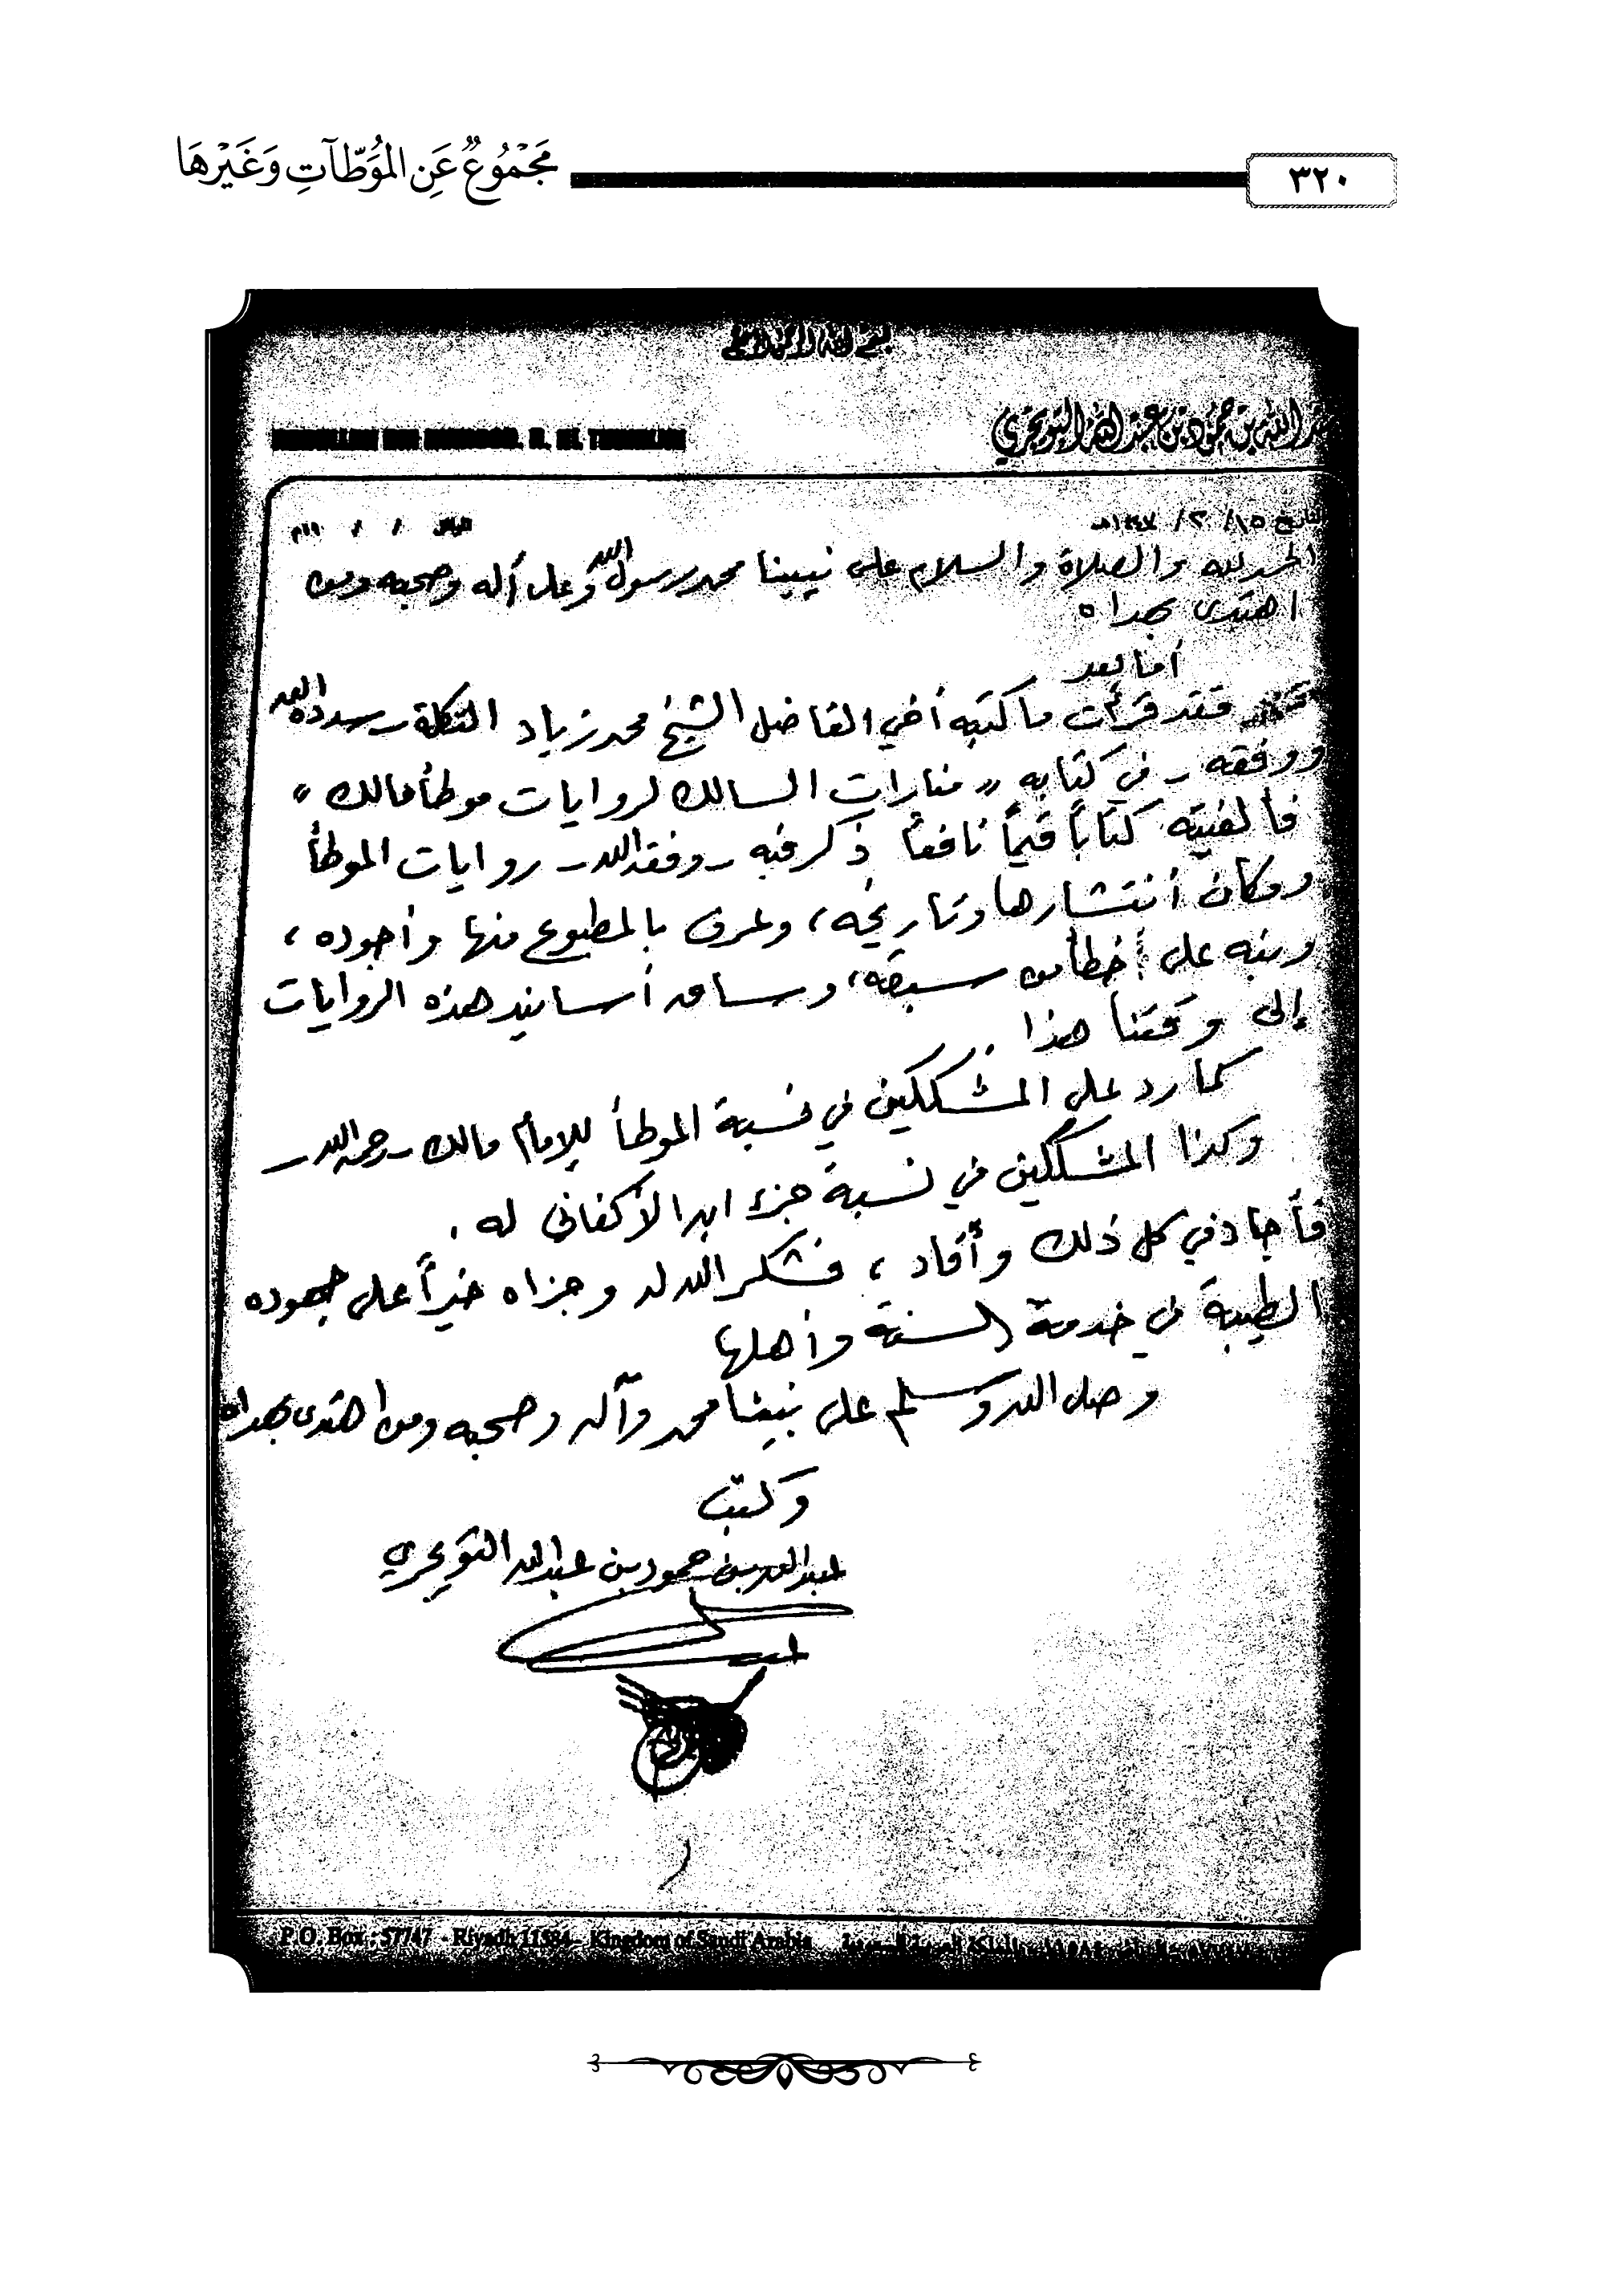 مَجْمُوعٌ عَنِ المُوَطَّآتِ وَغَيْرِهَا
٣٢٠
عبد الله بن حمود بن عبد الله التويجري
الحمد لله والصلاة والسلام على نبينا محمد رسول الله وعلى آله وصحبه ومن
اهتدى بهداه
أما بعد
فقد قرأت ما كتبه أخي الفاضل الشيخ محمد زياد التكلة - سدده الله
ووفقه - في كتابه " منارات السالك لروايات موطأ مالك "
فألفيته كتاباً قيماً نافعاً ذكر فيه - وفقه الله - روايات الموطأ
ومكان انتشارها وتاريخه، وعرف بالمطبوع منها وأجوده،
ونبه على خطأ من سبقه، وساق أسانيد هذه الروايات
إلى وقتنا هذا.
كما رد على المشككين في نسبة الموطأ للإمام مالك - رحمه الله -
وكذا المشككين في نسبة جزء ابن الأكفاني له.
فأجاد في كل ذلك وأفاد، فشكر الله له وجزاه خيراً على جهوده
الطيبة في خدمة السنة وأهلها
وصل الله وسلم على نبينا محمد وآله وصحبه ومن اهتدى بهداه
وكتب
عبد الله بن حمود بن عبد الله التويجري
P.O. Box : 57747 - Riyadh 11584 - Kingdom of Saudi Arabia